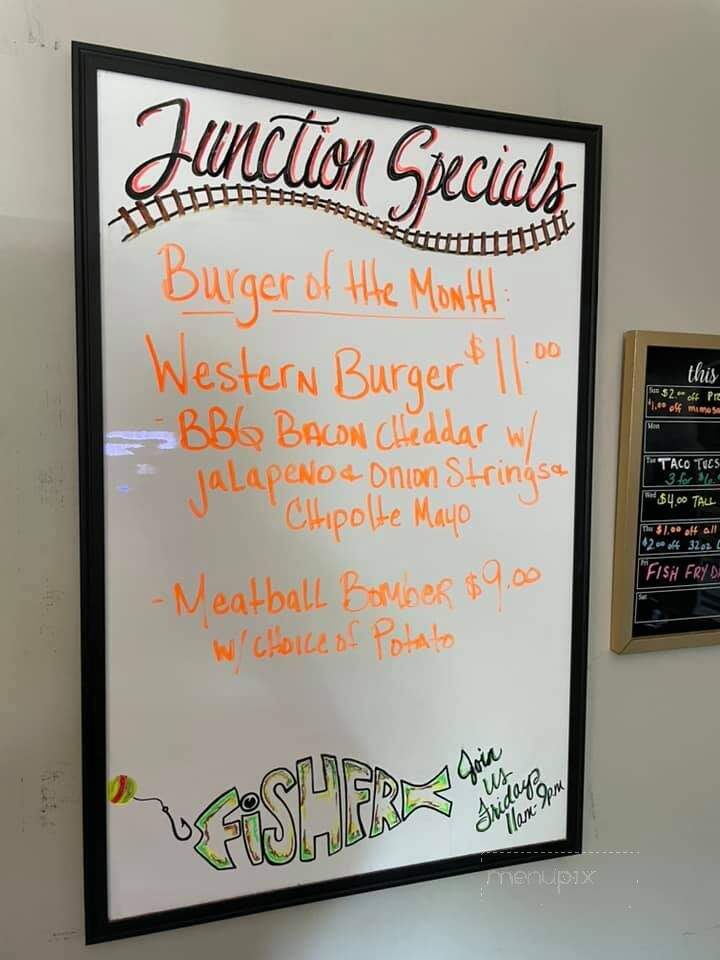 Junction Specials
Burger of the Month:
Western Burger $11.00
- BBQ Bacon Cheddar w/
jalapeno & onion Strings &
Chipolte Mayo
- Meatball Bomber $9.00
w/ choice of Potato
FiSHFRY
Join
us
Fridays
11am-9pm
this
Sun $2.00 off
$1.00 off mimosa
Mon
Tue TACO TUES
3 for $6
Wed $4.00 TALL
Thu $1.00 off all
$2.00 off 32oz
Fri
FISH FRY
Sat
menupix